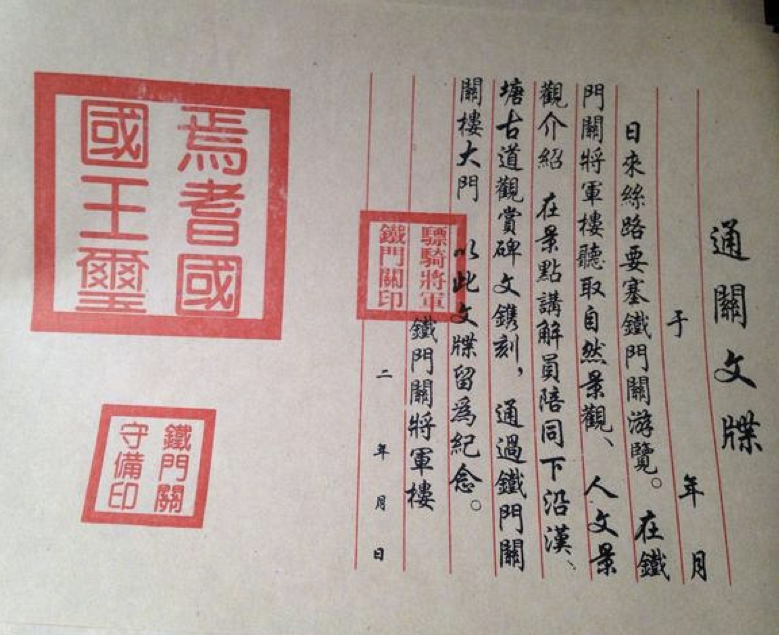 通關文牒
于　年　月
日來絲路要塞鐵門關游覽。在鐵
門關將軍樓聽取自然景觀、人文景
觀介紹　在景點講解員陪同下沿漢、
塘古道觀賞碑文鐫刻，通過鐵門關
關樓大門　以此文牒留爲紀念。
鐵門關將軍樓
二　年　月　日
驃騎將軍
鐵門關印
焉耆國
國王璽
鐵門關
守備印